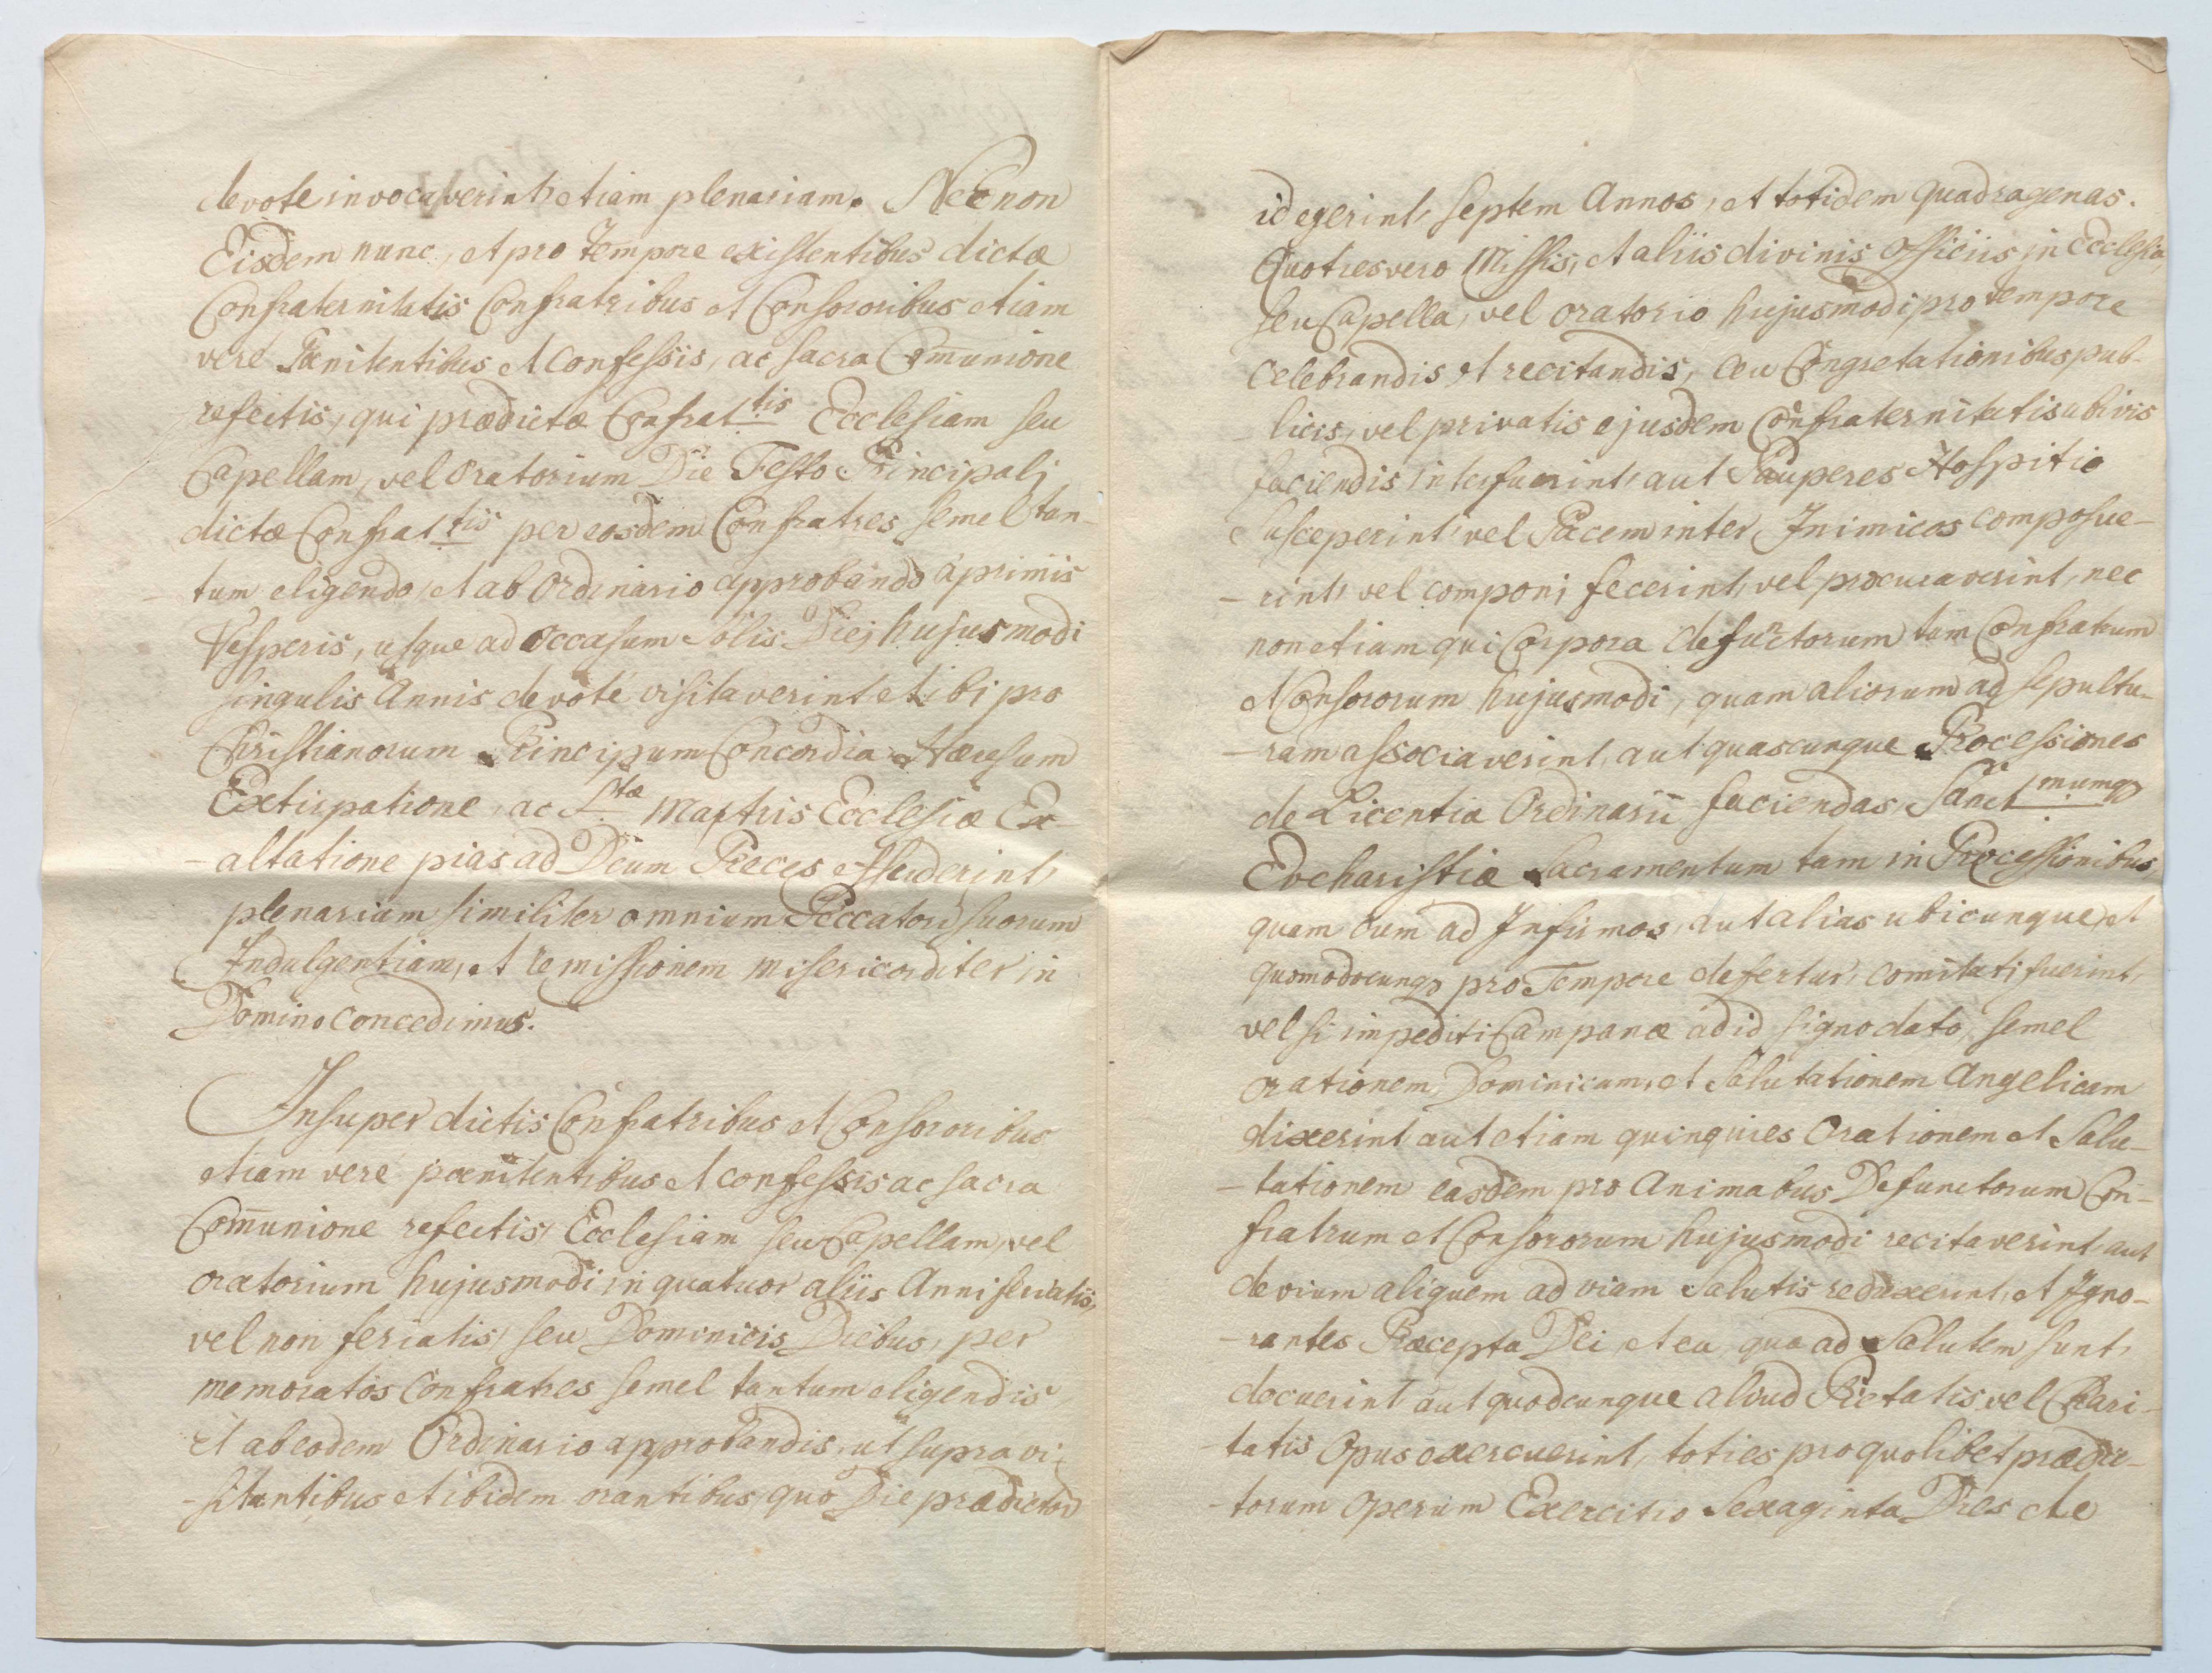 devote invocaverint, etiam plenariam. Nec non
Eisdem nunc, et pro Tempore existentibus dictæ
Confraternitatis Confratribus et Consororibus etiam
vere Pænitentibus et Confessis, ac sacra Com̄unione
refectis, qui prædictæ Confrat.tis Ecclesiam seu
Capellam, vel Oratorium Die Festo Principali
dictæ Confrat.tis per eosdem Confratres semel tan-
tum eligendo, et ab Ordinario approbando à primis
Vesperis, usque ad Occasum Solis Diei hujusmodi
singulis Annis devotè visitaverint et ibi pro
Christianorum Principum Concordia Hæresum
Extirpatione, ac S.tæ Martris Ecclesiæ Ex-
- altatione pias ad Deum Preces effuderint,
plenariam similiter omnium Peccator suorum
Indulgentiam, et remissionem misericorditer in
Domino concedimus.
Insuper dictis Confratribus et Consororibus
etiam verè pænitentibus et confessis ac sacra
Com̄unione refectis, Ecclesiam seu Capellam, vel
oratorium hujusmodi in quatuor aliis Anni feriatis,
vel non feriatis, seu Dominicis Diebus, per
memoratos Confratres semel tantum eligendis,
et ab eodem Ordinario approbandis, ut supra vi-
- sitantibus et ibidem orantibus, quo Die prædictor
id egerint, septem Annos, et totidem quadragenas.
Quoties vero Missis, et aliis divinis Officiis in Ecclesia,
seu Capella, vel Oratorio hujusmodi pro tempore
Celebrandis et recitandis, ceu Congretationibus pub-
- licis, vel privatis ejusdem Confraternitatis ubivis
faciendis interfuerint, aut Pauperes Hospitio
susceperint, vel Pacem inter Inimicos composue-
- rint, vel componi fecerint, vel procuraverint, nec
non etiam qui Corpora defunctorum tam Confratrum
et Consororum hujusmodi, quam aliorum ad sepultu-
- ram associaverint, aut quascunque Processiones
de Licentia Ordinarii faciendas, Sanct.mumq
Evcharistiæ Sacramentum tam in Processionibus,
quam cum ad Infirmos, aut alias ubicunque, et
quomodocunq pro Tempore defertur, comitati fuerint,
vel si impediti Campanæ ad id signo dato, semel
Orationem Dominicam, et Salutationem Angelicam
dixerint aut etiam quinquies Orationem et Salu-
- tationem easdem pro Animabus Defunctorum Con-
fratrum et Consororum hujusmodi recitaverint aut
devium aliquem ad viam Salutis reduxerint, et Igno-
- rantes Præcepta Dei, et ea, qua ad Salutem sunt,
docuerint aut quodcunque aliud Pietatis, vel Chari-
- tatis Opus exercuerint, toties pro quolibet prædic-
- torum Operum Exercitio Sexaginta Dies de